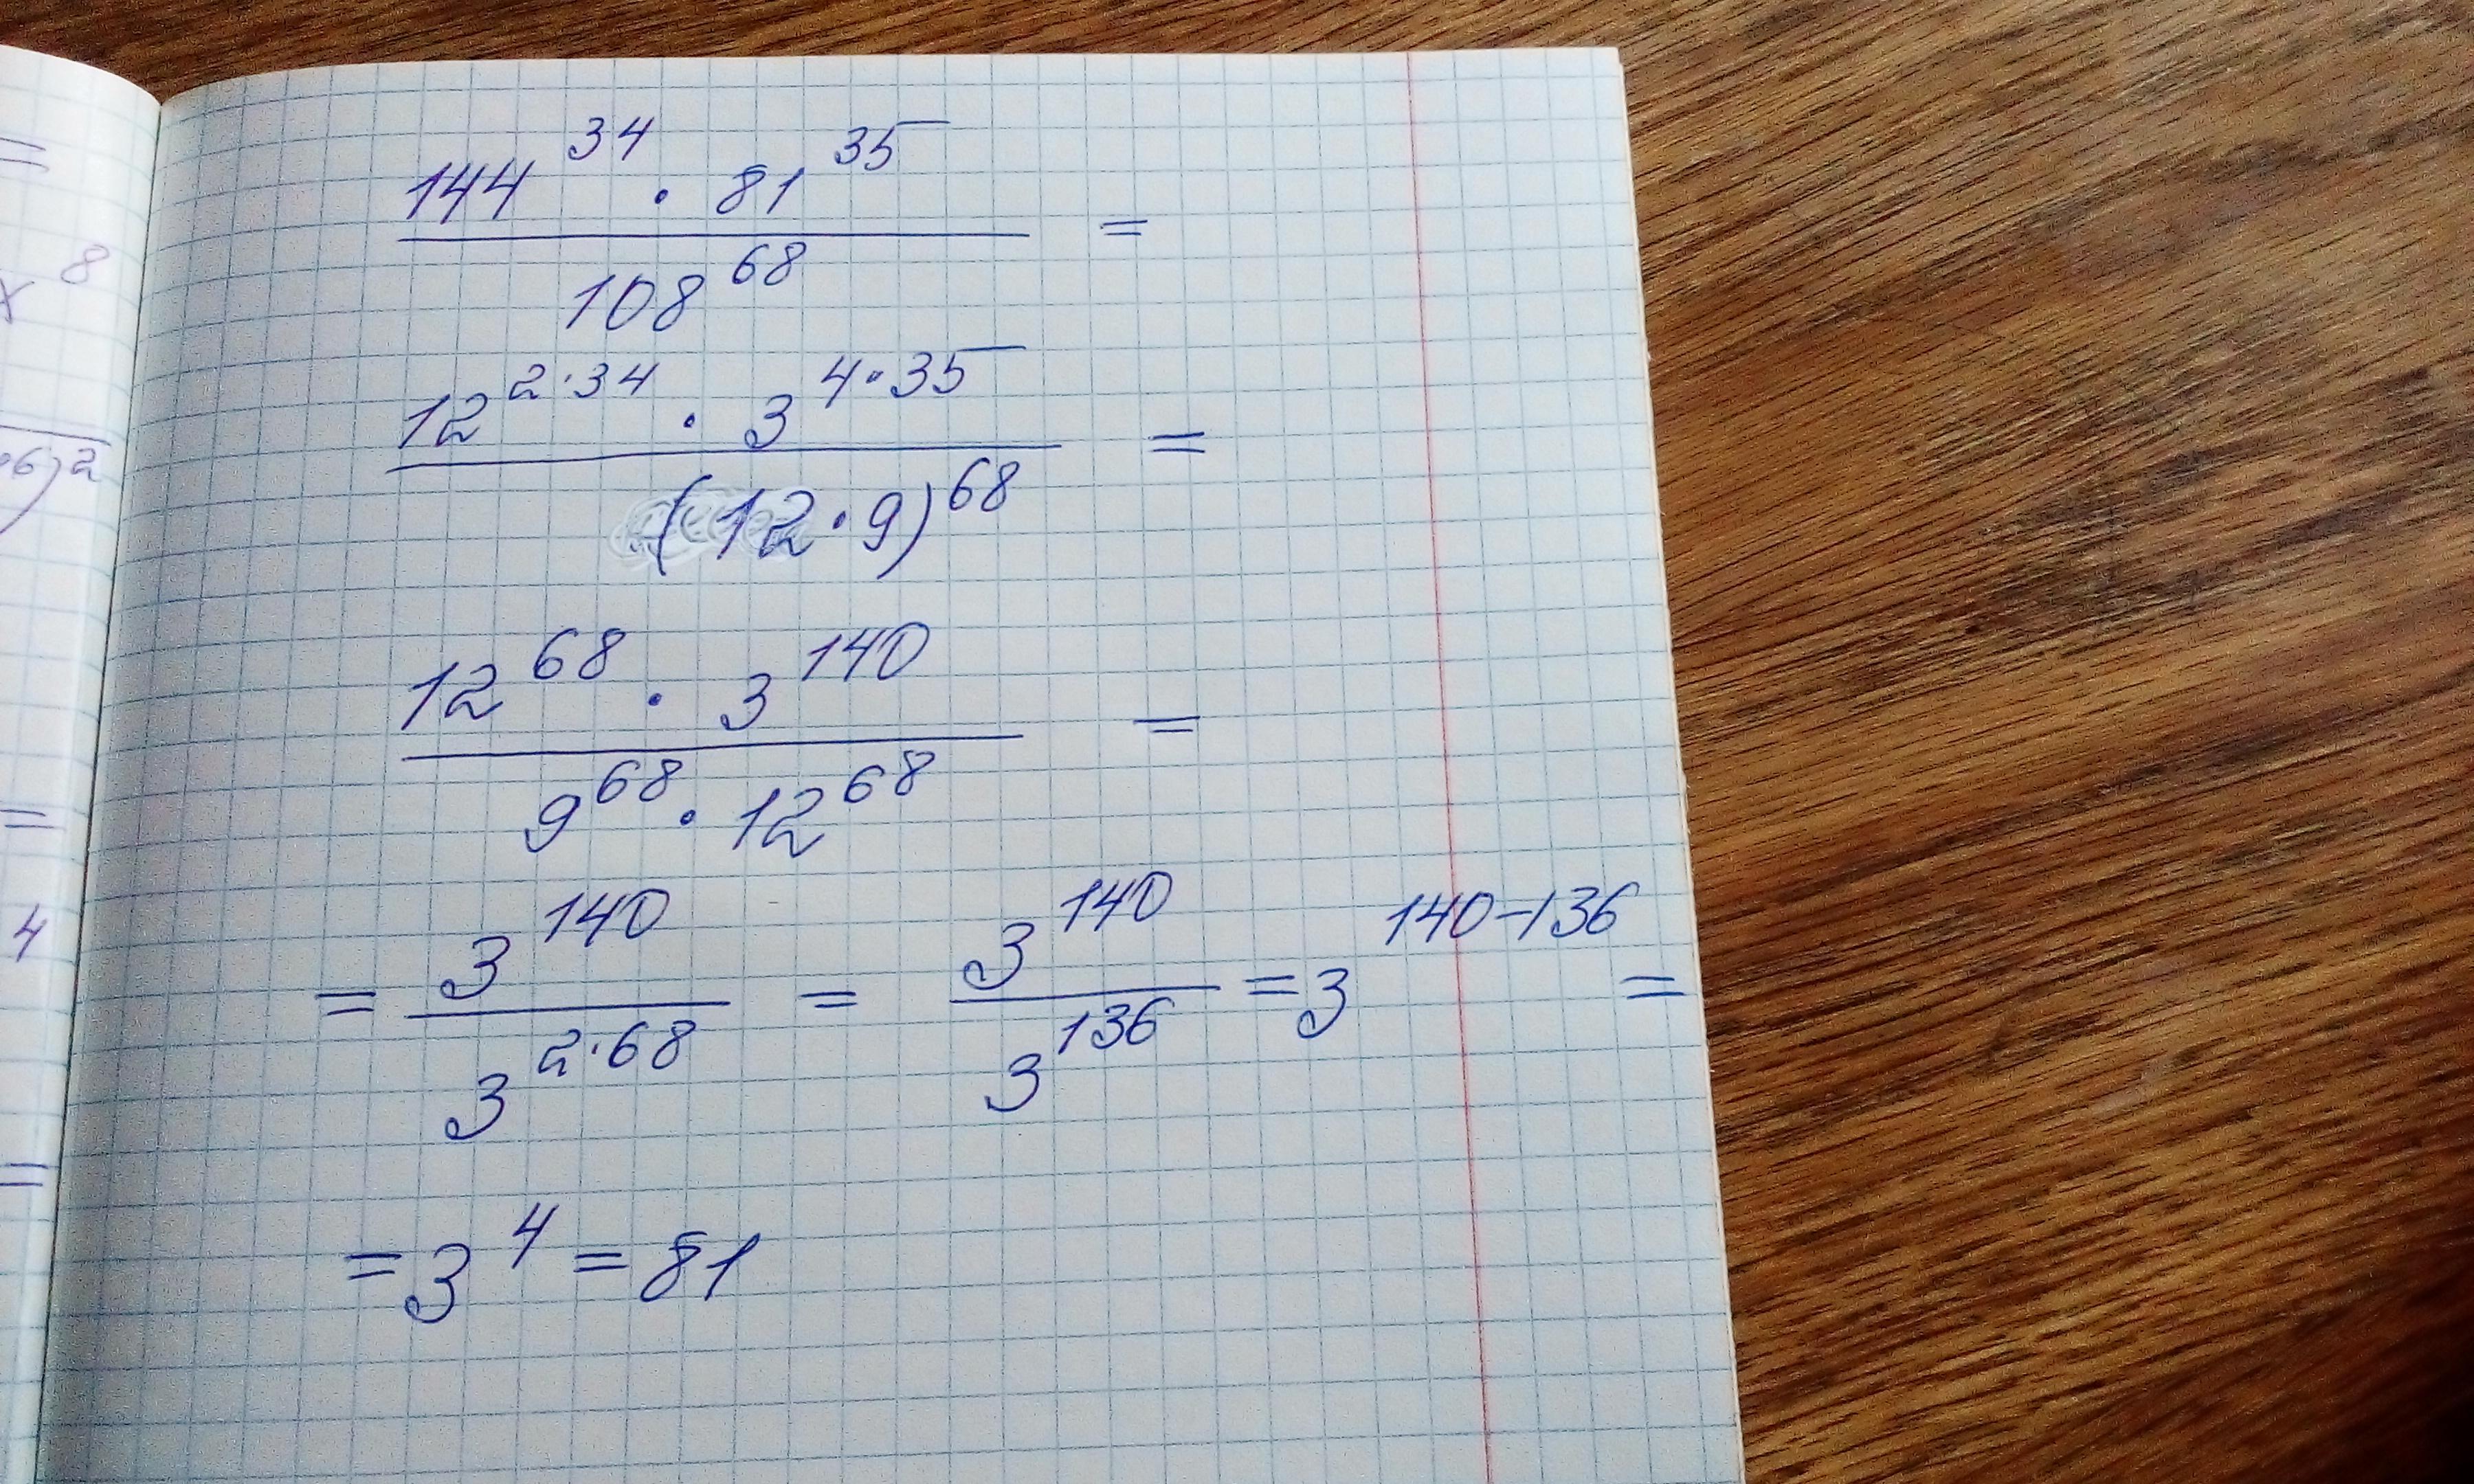 144^34 · 81^35 / 108^68 =
12^2·34 · 3^4·35 / (12·9)^68 =
12^68 · 3^140 / 9^68 · 12^68 =
= 3^140 / 3^2·68 = 3^140 / 3^136 = 3^140-136 =
= 3^4 = 81
=
x^8
·6)^2
=
4
=